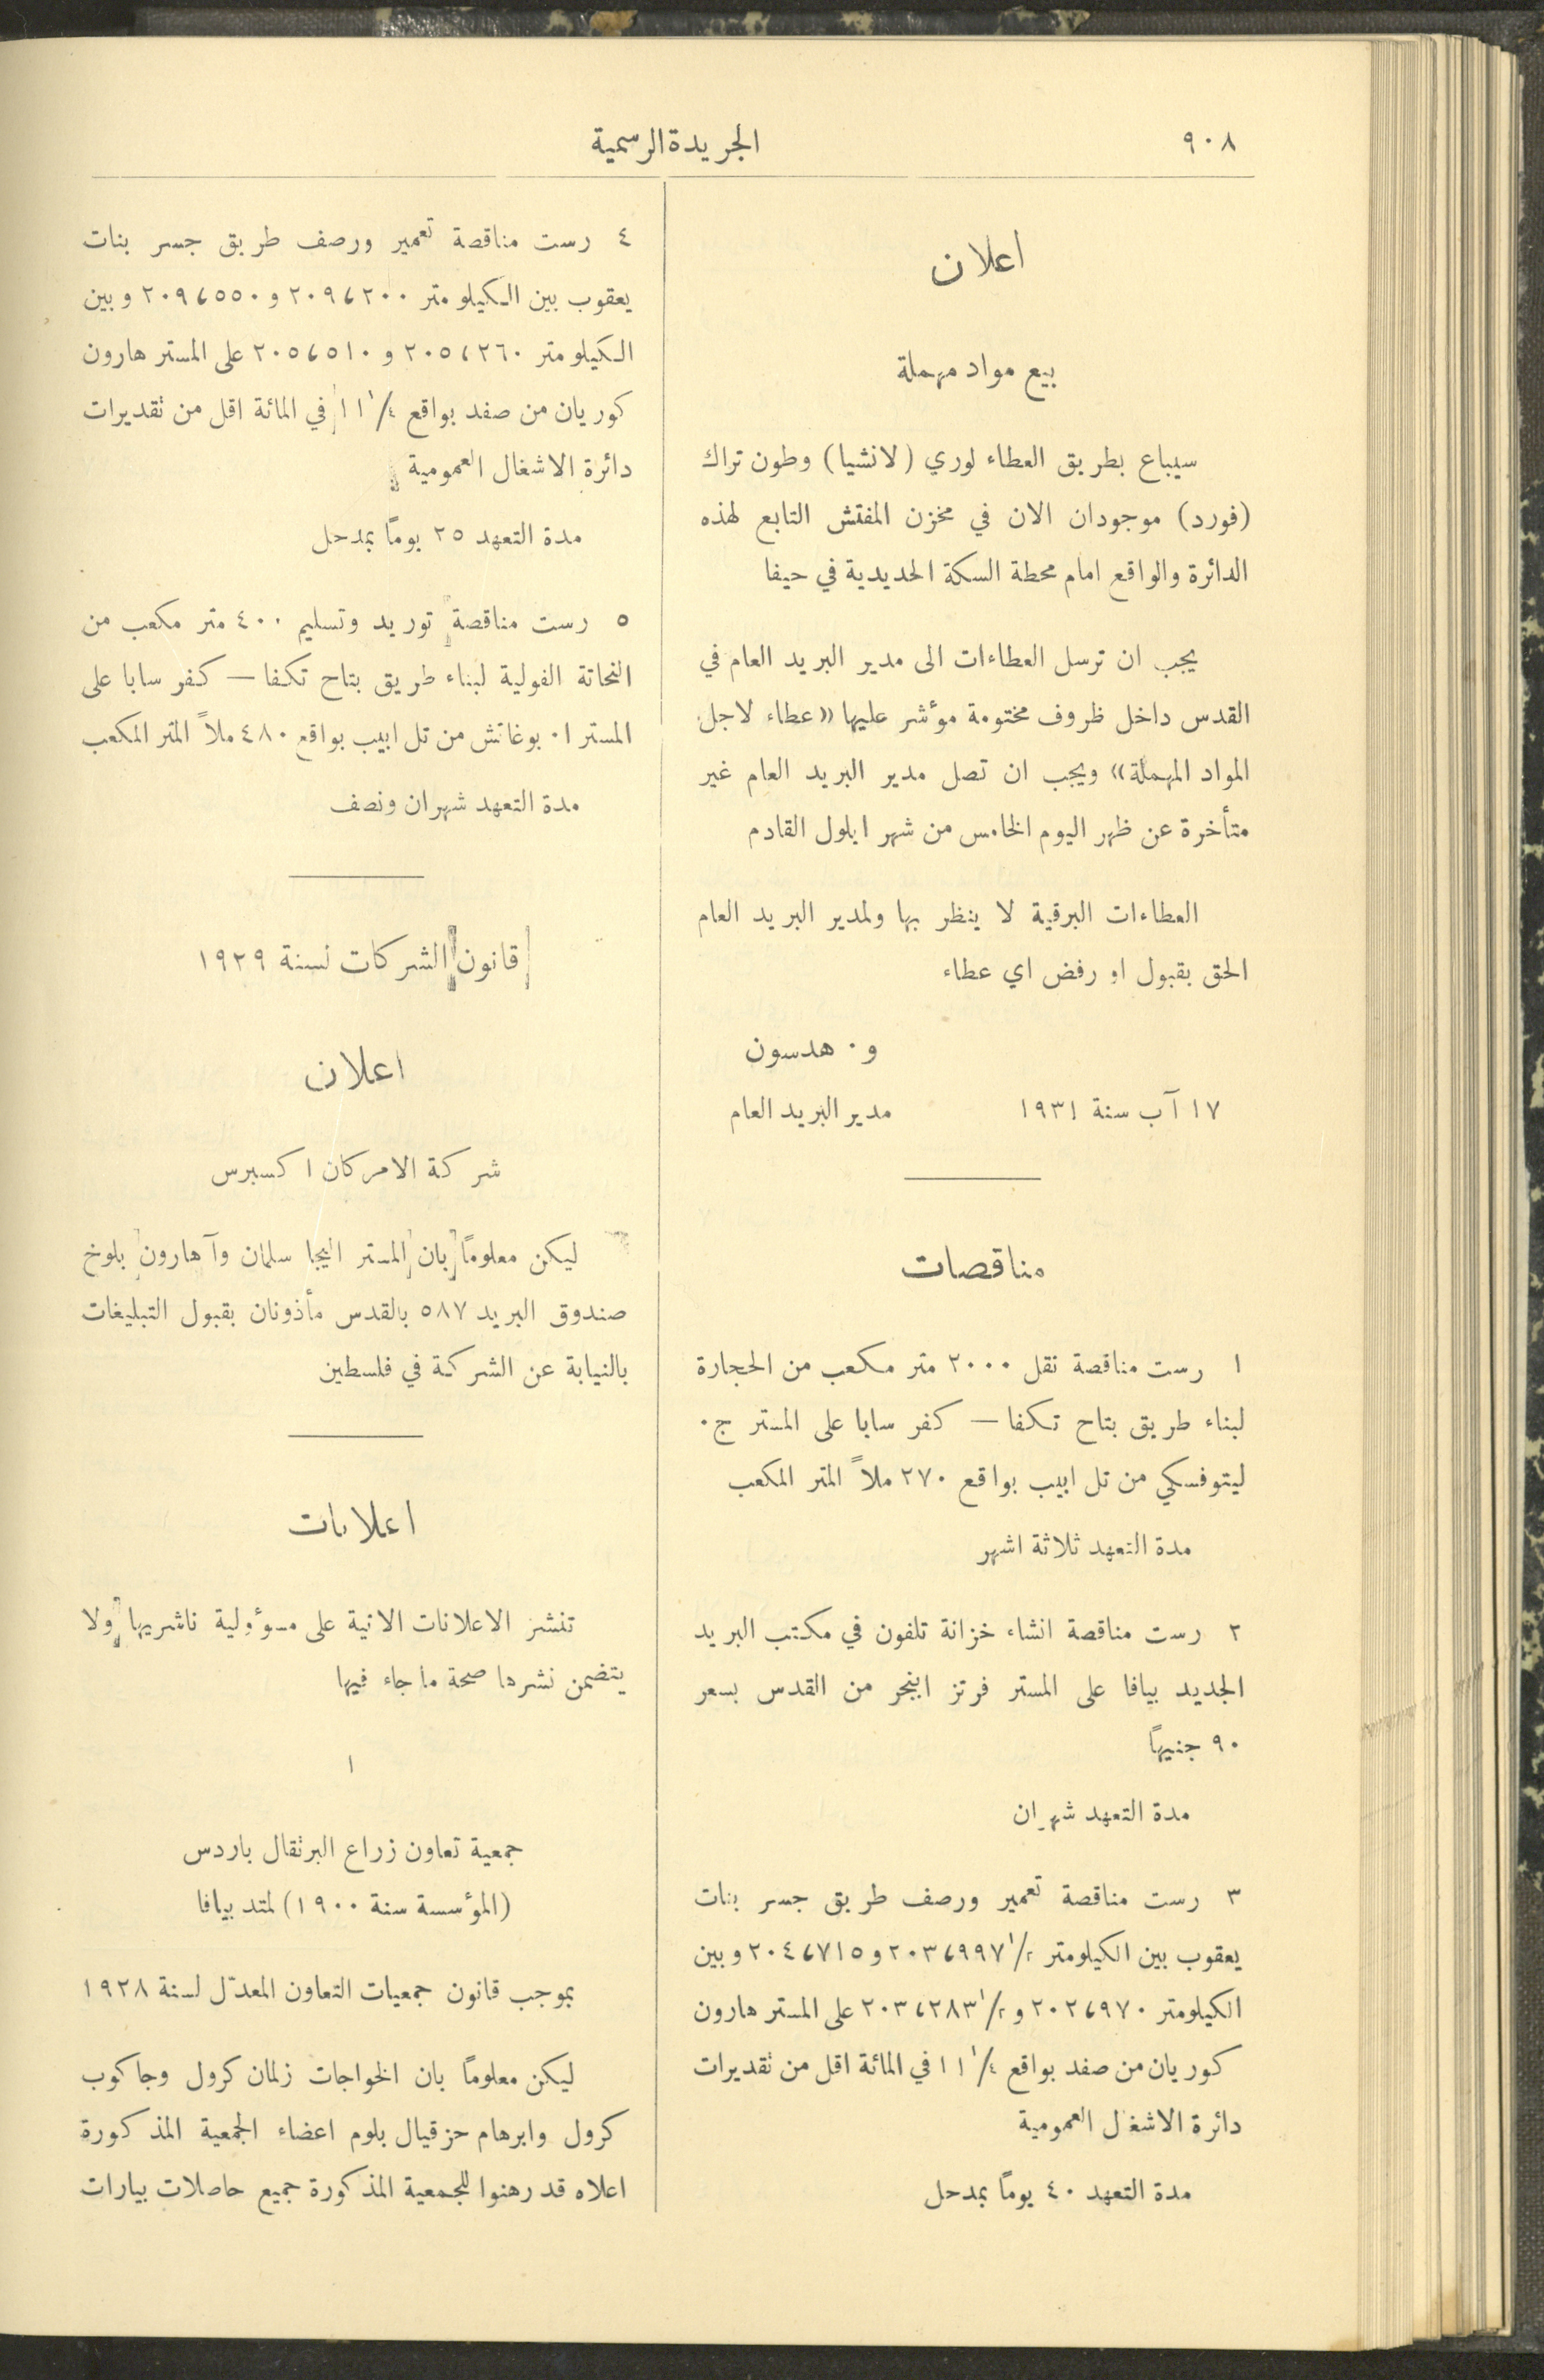 ٩٠٨
الجريدة الرسمية
اعلان
بيع مواد مهملة
سيباع بطريق العطاء لوري (لانشيا) وطون تراك
(فورد) موجودان الان في مخزن المفتش التابع لهذه
الدائرة والواقع امام محطة السكة الحديدية في حيفا
يجب ان ترسل العطاءات الى مدير البريد العام في
القدس داخل ظروف مختومة مؤشر عليها «عطاء لاجل
المواد المهملة» ويجب ان تصل مدير البريد العام غير
متأخرة عن ظهر اليوم الخامس من شهر ايلول القادم
العطاءات البرقية لا ينظر بها ولمدير البريد العام
الحق بقبول او رفض اي عطاء
و٠ هدسون
١٧ آب سنة ١٩٣١ مدير البريد العام
مناقصات
١ رست مناقصة نقل ٢٠٠٠ متر مكعب من الحجارة
لبناء طريق بتاح تكفا — كفر سابا على المستر ج٠
ليتوفسكي من تل ابيب بواقع ٢٧٠ ملاً المتر المكعب
مدة التعهد ثلاثة اشهر
٢ رست مناقصة انشاء خزانة تلفون في مكتب البريد
الجديد بيافا على المستر فرتز اينجر من القدس بسعر
٩٠ جنيهاً
مدة التعهد شهران
٣ رست مناقصة تعمير ورصف طريق جسر بنات
يعقوب بين الكيلومتر ١/٢ ٢٠٣،٩٩٧ و ٢٠٤،٧١٥ وبين
الكيلومتر ٢٠٢،٩٧٠ و ١/٢ ٢٠٣،٢٨٣ على المستر هارون
كوريان من صفد بواقع ١/٤ ١١ في المائة اقل من تقديرات
دائرة الاشغال العمومية
مدة التعهد ٤٠ يوماً بمدحل
٤ رست مناقصة تعمير ورصف طريق جسر بنات
يعقوب بين الكيلومتر ٢٠٩،٢٠٠ و ٢٠٩،٥٥٠ وبين
الكيلومتر ٢٠٥،٢٦٠ و ٢٠٥،٥١٠ على المستر هارون
كوريان من صفد بواقع ١/٤ ١١ في المائة اقل من تقديرات
دائرة الاشغال العمومية
مدة التعهد ٢٥ يوماً بمدحل
٥ رست مناقصة توريد وتسليم ٤٠٠ متر مكعب من
النحاتة الفولية لبناء طريق بتاح تكفا — كفر سابا على
المستر ا٠ بوغاتش من تل ابيب بواقع ٤٨٠ ملاً المتر المكعب
مدة التعهد شهران ونصف
قانون الشركات لسنة ١٩٢٩
اعلان
شركة الامركان اكسبرس
ليكن معلوماً بان المستر اليجا سلمان وآهارون بلوخ
صندوق البريد ٥٨٧ بالقدس مأذونان بقبول التبليغات
بالنيابة عن الشركة في فلسطين
اعلانات
تنشر الاعلانات الاتية على مسؤولية ناشريها ولا
يتضمن نشرها صحة ما جاء فيها
١
جمعية تعاون زراع البرتقال باردس
(المؤسسة سنة ١٩٠٠) لمتد بيافا
بموجب قانون جمعيات التعاون المعدّل لسنة ١٩٢٨
ليكن معلوماً بان الخواجات زلمان كرول وجاكوب
كرول وابرهام حزقيال بلوم اعضاء الجمعية المذكورة
اعلاه قد رهنوا للجمعية المذكورة جميع حاصلات بيارات